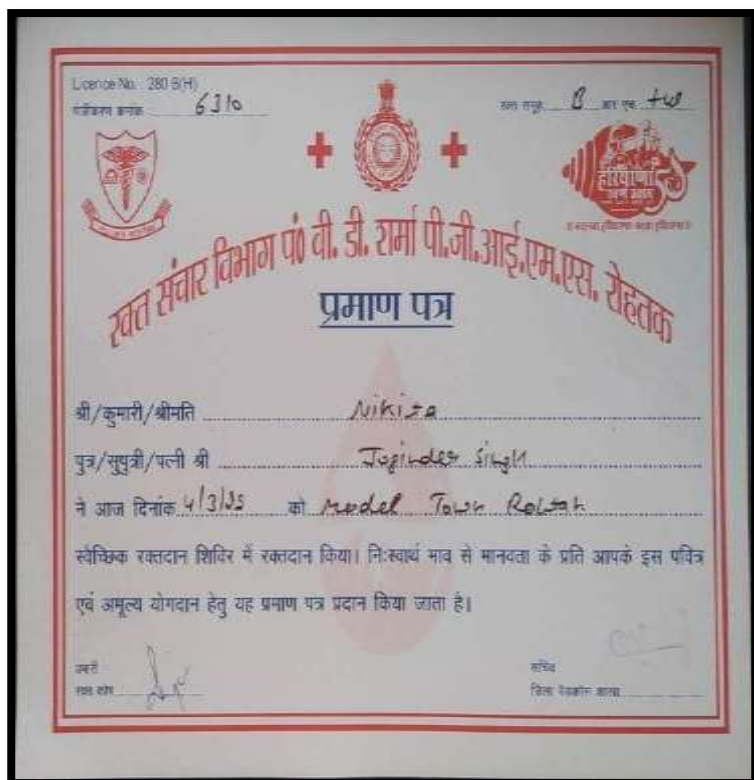 Licence No. : 280 B(H)
पंजीकरण क्रमांक 6310
रक्त समूह B आर एच +ve
हरियाणा
रक्त संचार विभाग पं० वी. डी. शर्मा पी.जी.आई.एम.एस. रोहतक
प्रमाण पत्र
श्री/कुमारी/श्रीमति Nikita
पुत्र/सुपुत्री/पत्नी श्री Joginder Singh
ने आज दिनांक 4/3/ को Model Town Rohtak
स्वेच्छिक रक्तदान शिविर में रक्तदान किया। निःस्वार्थ भाव से मानवता के प्रति आपके इस पवित्र
एवं अमूल्य योगदान हेतु यह प्रमाण पत्र प्रदान किया जाता है।
प्रभारी
रक्त कोष
सचिव
जिला रेडक्रॉस शाखा